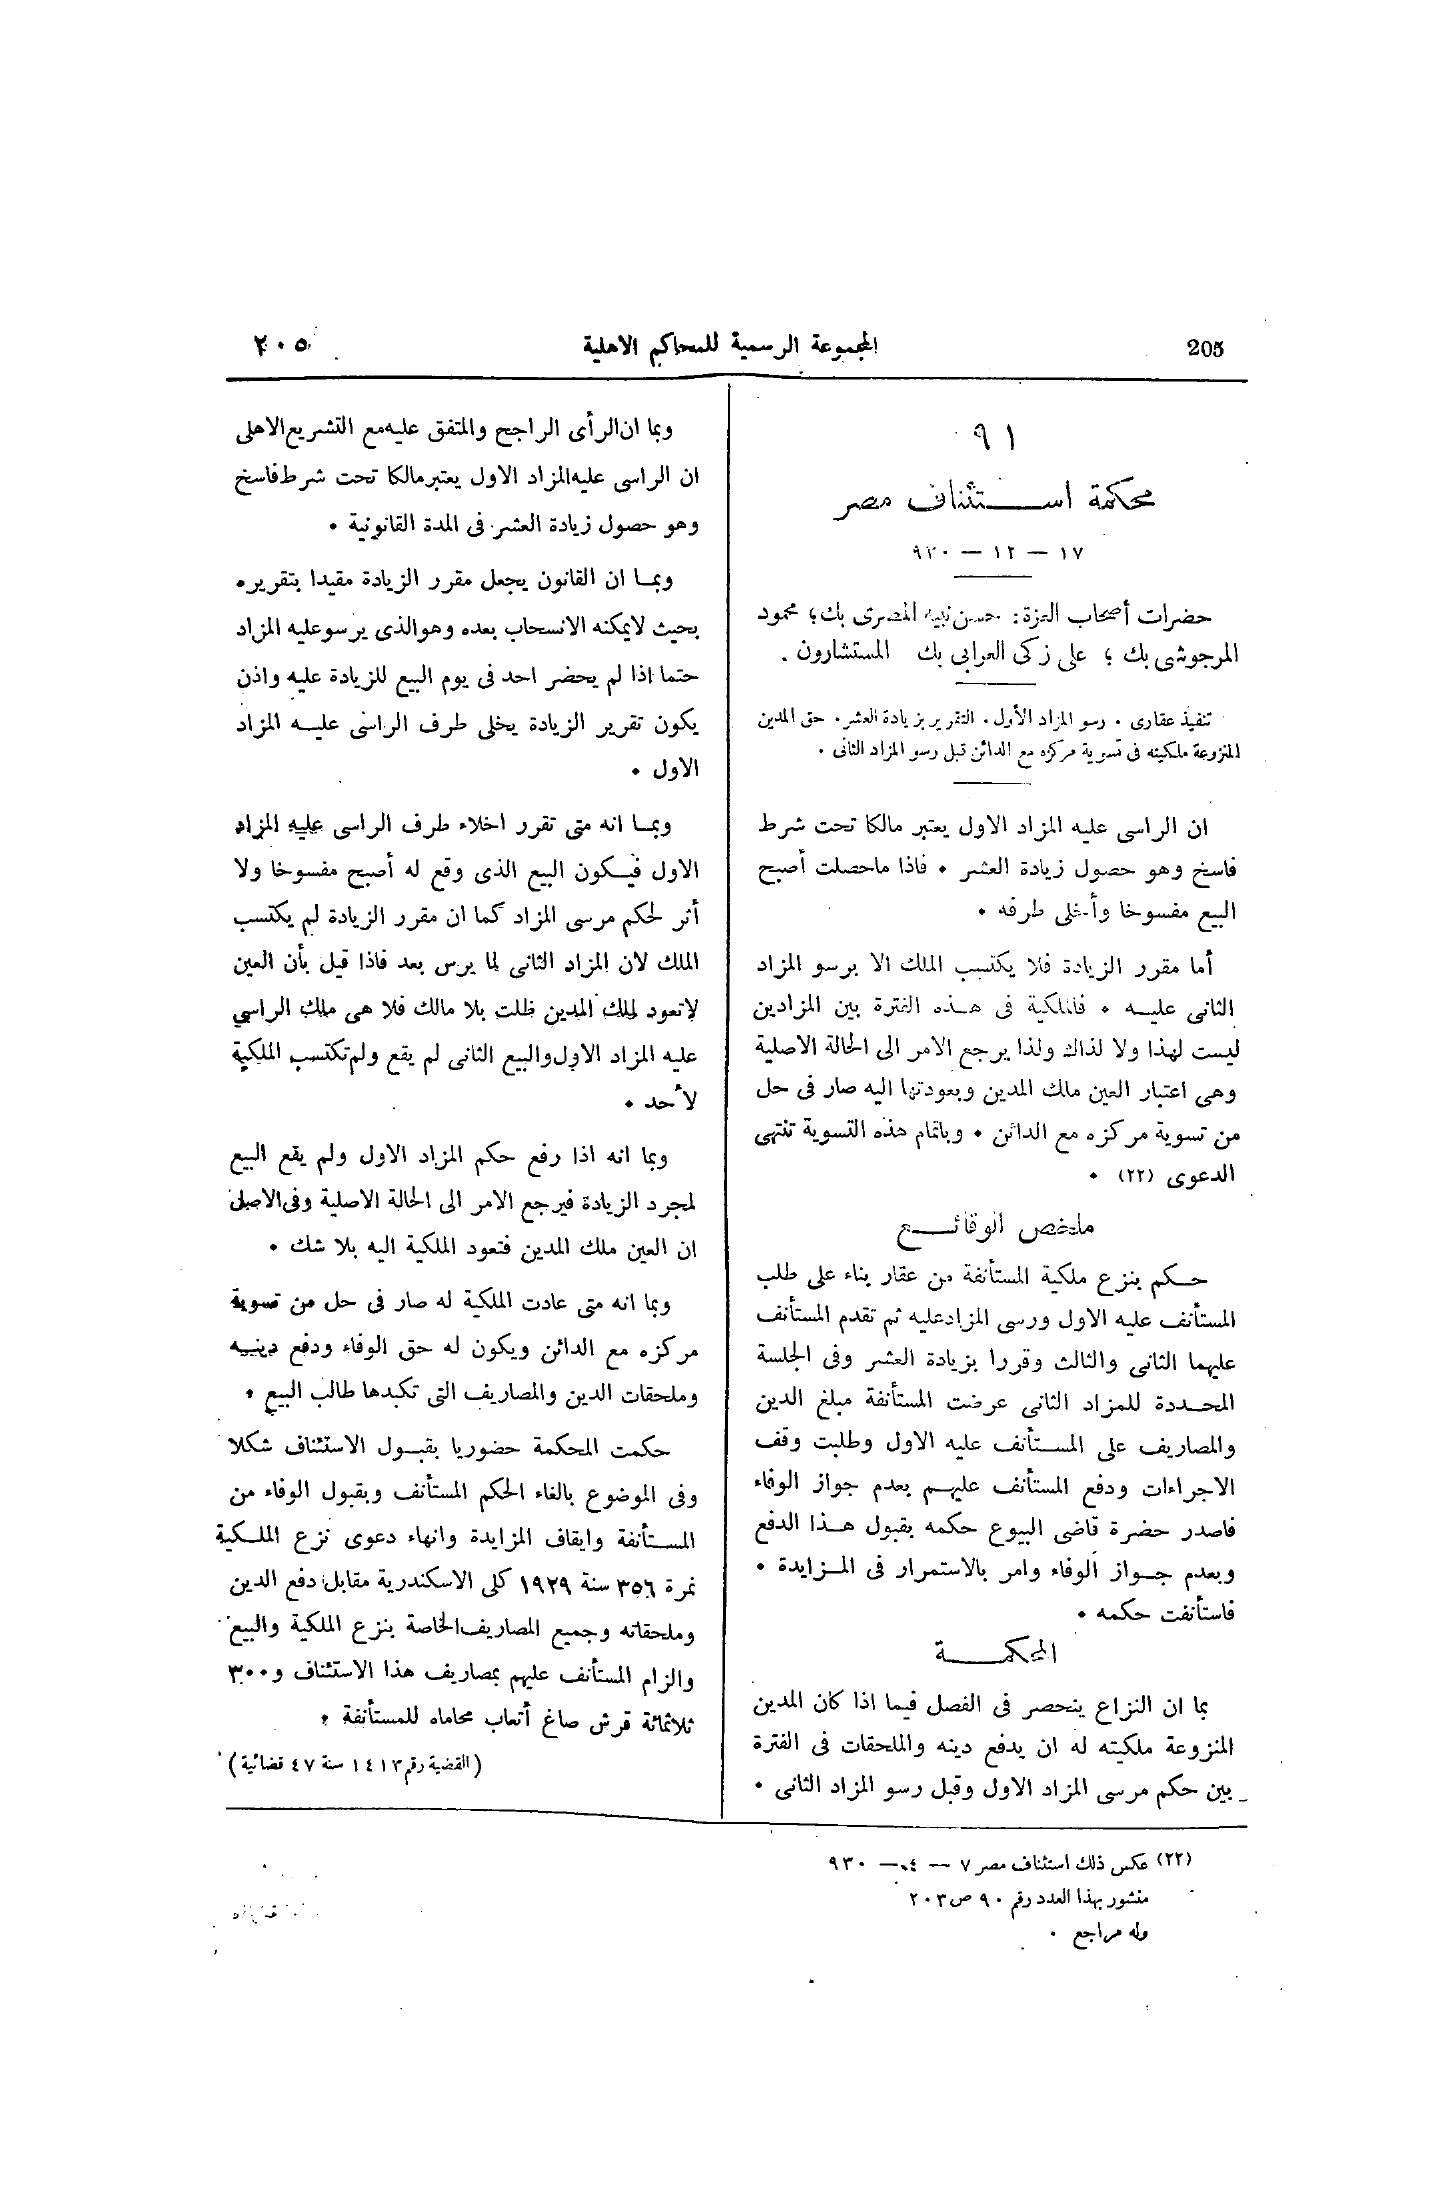 205
المجموعة الرسمية للمحاكم الاهلية
٢٠٥
٩١
محكمة استئناف مصر
١٧ — ١٢ — ٩٣٠
حضرات أصحاب العزة: حسن نبيه المصرى بك؛ محمود
المرجوشى بك ؛ على زكى العرابى بك المستشارون .
تنفيذ عقارى . رسو المزاد الأول. التقرير بزيادة العشر. حق المدين
المنزوعة ملكيته فى تسوية مركزه مع الدائن قبل رسو المزاد الثانى .
ان الراسى عليه المزاد الاول يعتبر مالكا تحت شرط
فاسخ وهو حصول زيادة العشر . فاذا ماحصلت أصبح
البيع مفسوخا وأخلى طرفه .
أما مقرر الزيادة فلا يكتسب الملك الا برسو المزاد
الثانى عليه . فالملكية فى هذه الفترة بين المزادين
ليست لهذا ولا لذاك ولذا يرجع الامر الى الحالة الاصلية
وهى اعتبار العين مالك المدين وبعودتها اليه صار فى حل
من تسوية مركزه مع الدائن . وباتمام هذه التسوية تنتهى
الدعوى (٢٢) .
ملخص الوقائع
حكم بنزع ملكية المستأنفة من عقار بناء على طلب
المستأنف عليه الاول ورسى المزاد عليه ثم تقدم المستأنف
عليهما الثانى والثالث وقررا بزيادة العشر وفى الجلسة
المحددة للمزاد الثانى عرضت المستأنفة مبلغ الدين
والمصاريف على المستأنف عليه الاول وطلبت وقف
الاجراءات ودفع المستأنف عليهم بعدم جواز الوفاء
فاصدر حضرة قاضى البيوع حكمه بقبول هذا الدفع
وبعدم جواز الوفاء وامر بالاستمرار فى المزايدة .
فاستأنفت حكمه .
المحكمة
بما ان النزاع ينحصر فى الفصل فيما اذا كان المدين
المنزوعة ملكيته له ان يدفع دينه والملحقات فى الفترة
بين حكم مرسى المزاد الاول وقبل رسو المزاد الثانى .
وبما ان الرأى الراجح والمتفق عليه مع التشريع الاهلى
ان الراسى عليه المزاد الاول يعتبر مالكا تحت شرط فاسخ
وهو حصول زيادة العشر فى المدة القانونية .
وبما ان القانون يجعل مقرر الزيادة مقيدا بتقريره
بحيث لايمكنه الانسحاب بعده وهوالذى يرسوعليه المزاد
حتما اذا لم يحضر احد فى يوم البيع للزيادة عليه واذن
يكون تقرير الزيادة يخلى طرف الراسى عليه المزاد
الاول .
وبما انه متى تقرر اخلاء طرف الراسى عليه المزاد
الاول فيكون البيع الذى وقع له أصبح مفسوخا ولا
أثر لحكم مرسى المزاد كما ان مقرر الزيادة لم يكتسب
الملك لان المزاد الثانى لما يرس بعد فاذا قيل بأن العين
لاتعود لملك المدين ظلت بلا مالك فلا هى ملك الراسى
عليه المزاد الاول والبيع الثانى لم يقع ولم تكتسب الملكية
لأحد .
وبما انه اذا رفع حكم المزاد الاول ولم يقع البيع
لمجرد الزيادة فيرجع الامر الى الحالة الاصلية وفى الاصل
ان العين ملك المدين فتعود الملكية اليه بلا شك .
وبما انه متى عادت الملكية له صار فى حل من تسوية
مركزه مع الدائن ويكون له حق الوفاء ودفع دينه
وملحقات الدين والمصاريف التى تكبدها طالب البيع .
حكمت المحكمة حضوريا بقبول الاستئناف شكلا
وفى الموضوع بالغاء الحكم المستأنف وبقبول الوفاء من
المستأنفة وايقاف المزايدة وانهاء دعوى نزع الملكية
نمرة ٣٥٦ سنة ١٩٢٩ كلى الاسكندرية مقابل دفع الدين
وملحقاته وجميع المصاريف الخاصة بنزع الملكية والبيع
والزام المستأنف عليهم بمصاريف هذا الاستئناف و٣٠٠
ثلاثمائة قرش صاغ أتعاب محاماه للمستأنفة .
(القضية رقم ١٤١٣ سنة ٤٧ قضائية)
(٢٢) عكس ذلك استئناف مصر ٧ — ٤ — ٩٣٠
منشور بهذا العدد رقم ٩٠ ص ٢٠٣
وله مراجع .